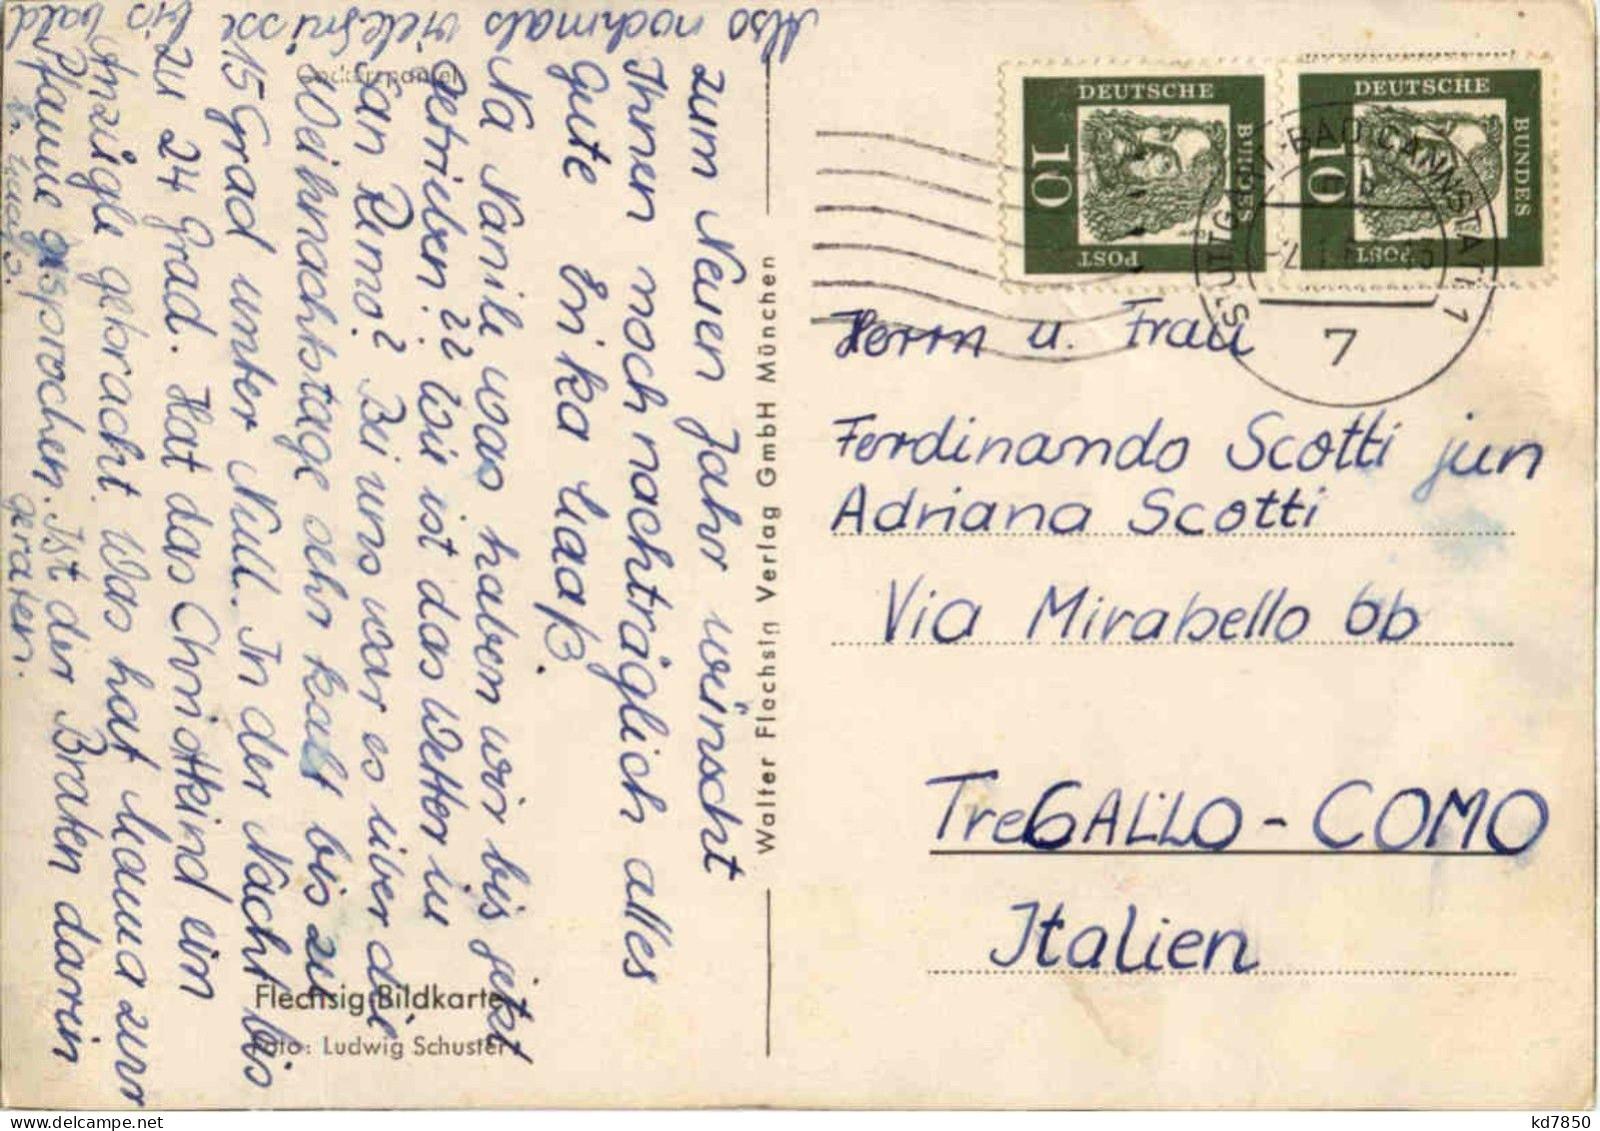 zum Neuen Jahr wünscht
Ihnen noch nachträglich alles
Gute Erika Haaß.
Na Namile was haben wir bis jetzt
getrieben?? Wie ist das Wetter in
San Remo? Bei uns war es über die
Weihnachtstage sehr kalt bis zu
15 Grad unter Null. In der Nacht bis
zu 24 Grad. Hat das Christkind ein
Anzügle gebracht. Was hat Mama zur
Pfanne gesprochen. Ist der Braten darin
geraten.
Also nochmals viele Grüsse
bis bald
Cockerspaniel
Flechsig-Bildkarte
Foto: Ludwig Schuster
Walter Flechsig Verlag GmbH München
DEUTSCHE
BUNDES
POST
10
DEUTSCHE
BUNDES
POST
10
STUTTGART-BAD CANNSTATT 1
7
Herrn u. Frau
Ferdinando Scotti jun
Adriana Scotti
Via Mirabello 6b
TreGALLO - COMO
Italien
kd7850